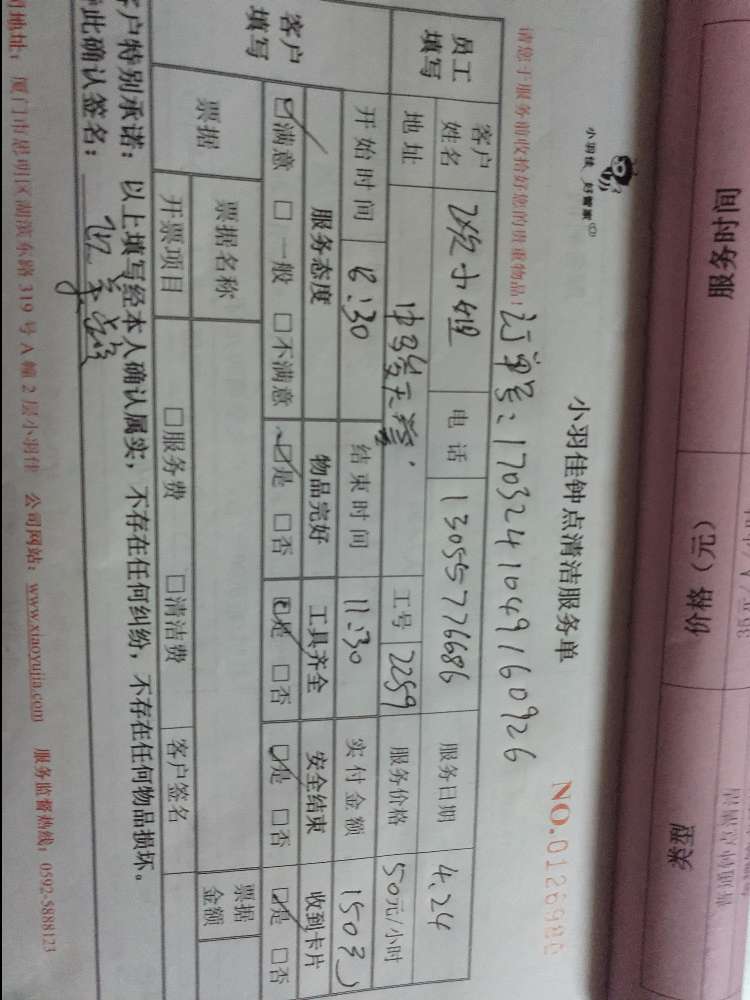 服务时间
价格（元）
类型
小羽佳 好管家
小羽佳钟点清洁服务单
请您于服务前收拾好您的贵重物品！
订单号：1703241049160926
员工填写
客户姓名
小姐
电话
13055776686
服务日期
4.24
地址
工号
2259
服务价格
50元/小时
开始时间
8:30
结束时间
11:30
实付金额
150元
客户填写
服务态度
物品完好
工具齐全
安全结束
收到卡片
☑满意 □一般 □不满意
☑是 □否
☑是 □否
☑是 □否
☑是 □否
票据
票据名称
票据金额
开票项目
□服务费 □清洁费
客户签名
客户特别承诺：以上填写经本人确认属实，不存在任何纠纷，不存在任何物品损坏。
此确认签名：
地址：厦门市思明区湖滨东路 319 号 A 幢 2 层小羽佳 公司网站：www.xiaoyujia.com 服务监督热线：0592-5888123